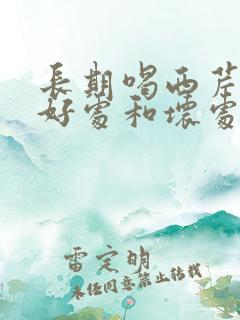 長期喝西芹
好處和壞處
雷定明
未經同意禁止轉載